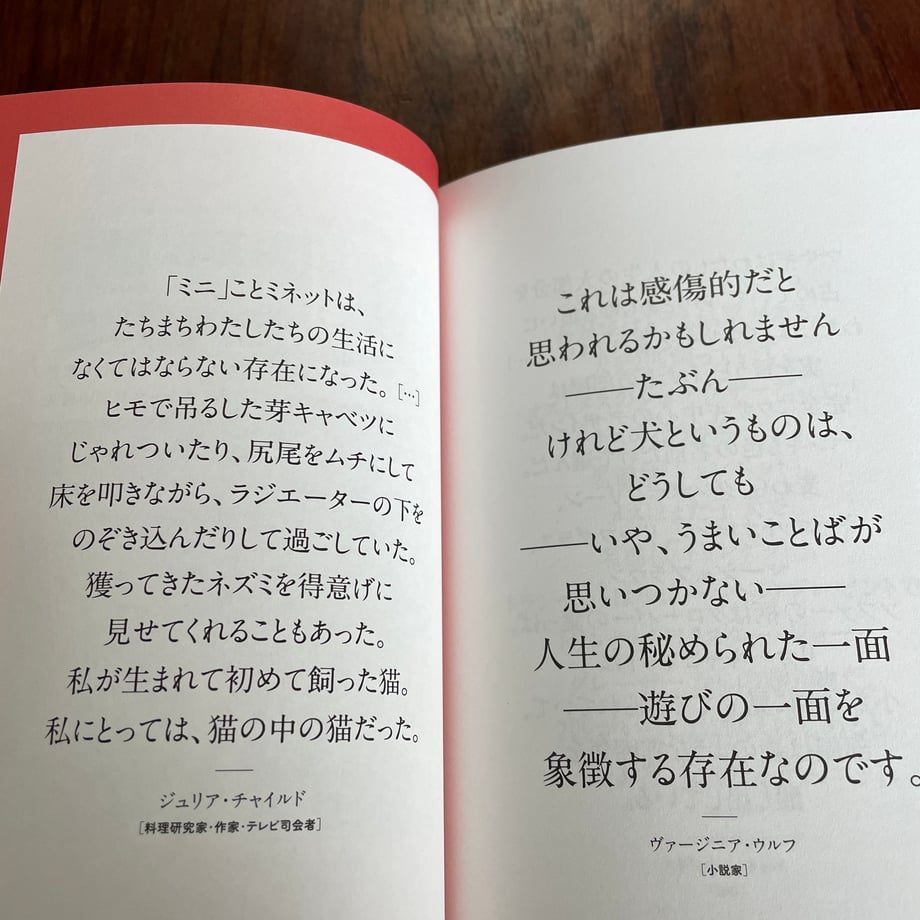 「ミニ」ことミネットは、
たちまちわたしたちの生活に
なくてはならない存在になった。[…]
ヒモで吊るした芽キャベツに
じゃれついたり、尻尾をムチにして
床を叩きながら、ラジエーターの下を
のぞき込んだりして過ごしていた。
獲ってきたネズミを得意げに
見せてくれることもあった。
私が生まれて初めて飼った猫。
私にとっては、猫の中の猫だった。
ジュリア・チャイルド
[料理研究家・作家・テレビ司会者]
これは感傷的だと
思われるかもしれません
——たぶん——
けれど犬というものは、
どうしても
——いや、うまいことばが
思いつかない——
人生の秘められた一面
——遊びの一面を
象徴する存在なのです。
ヴァージニア・ウルフ
[小説家]